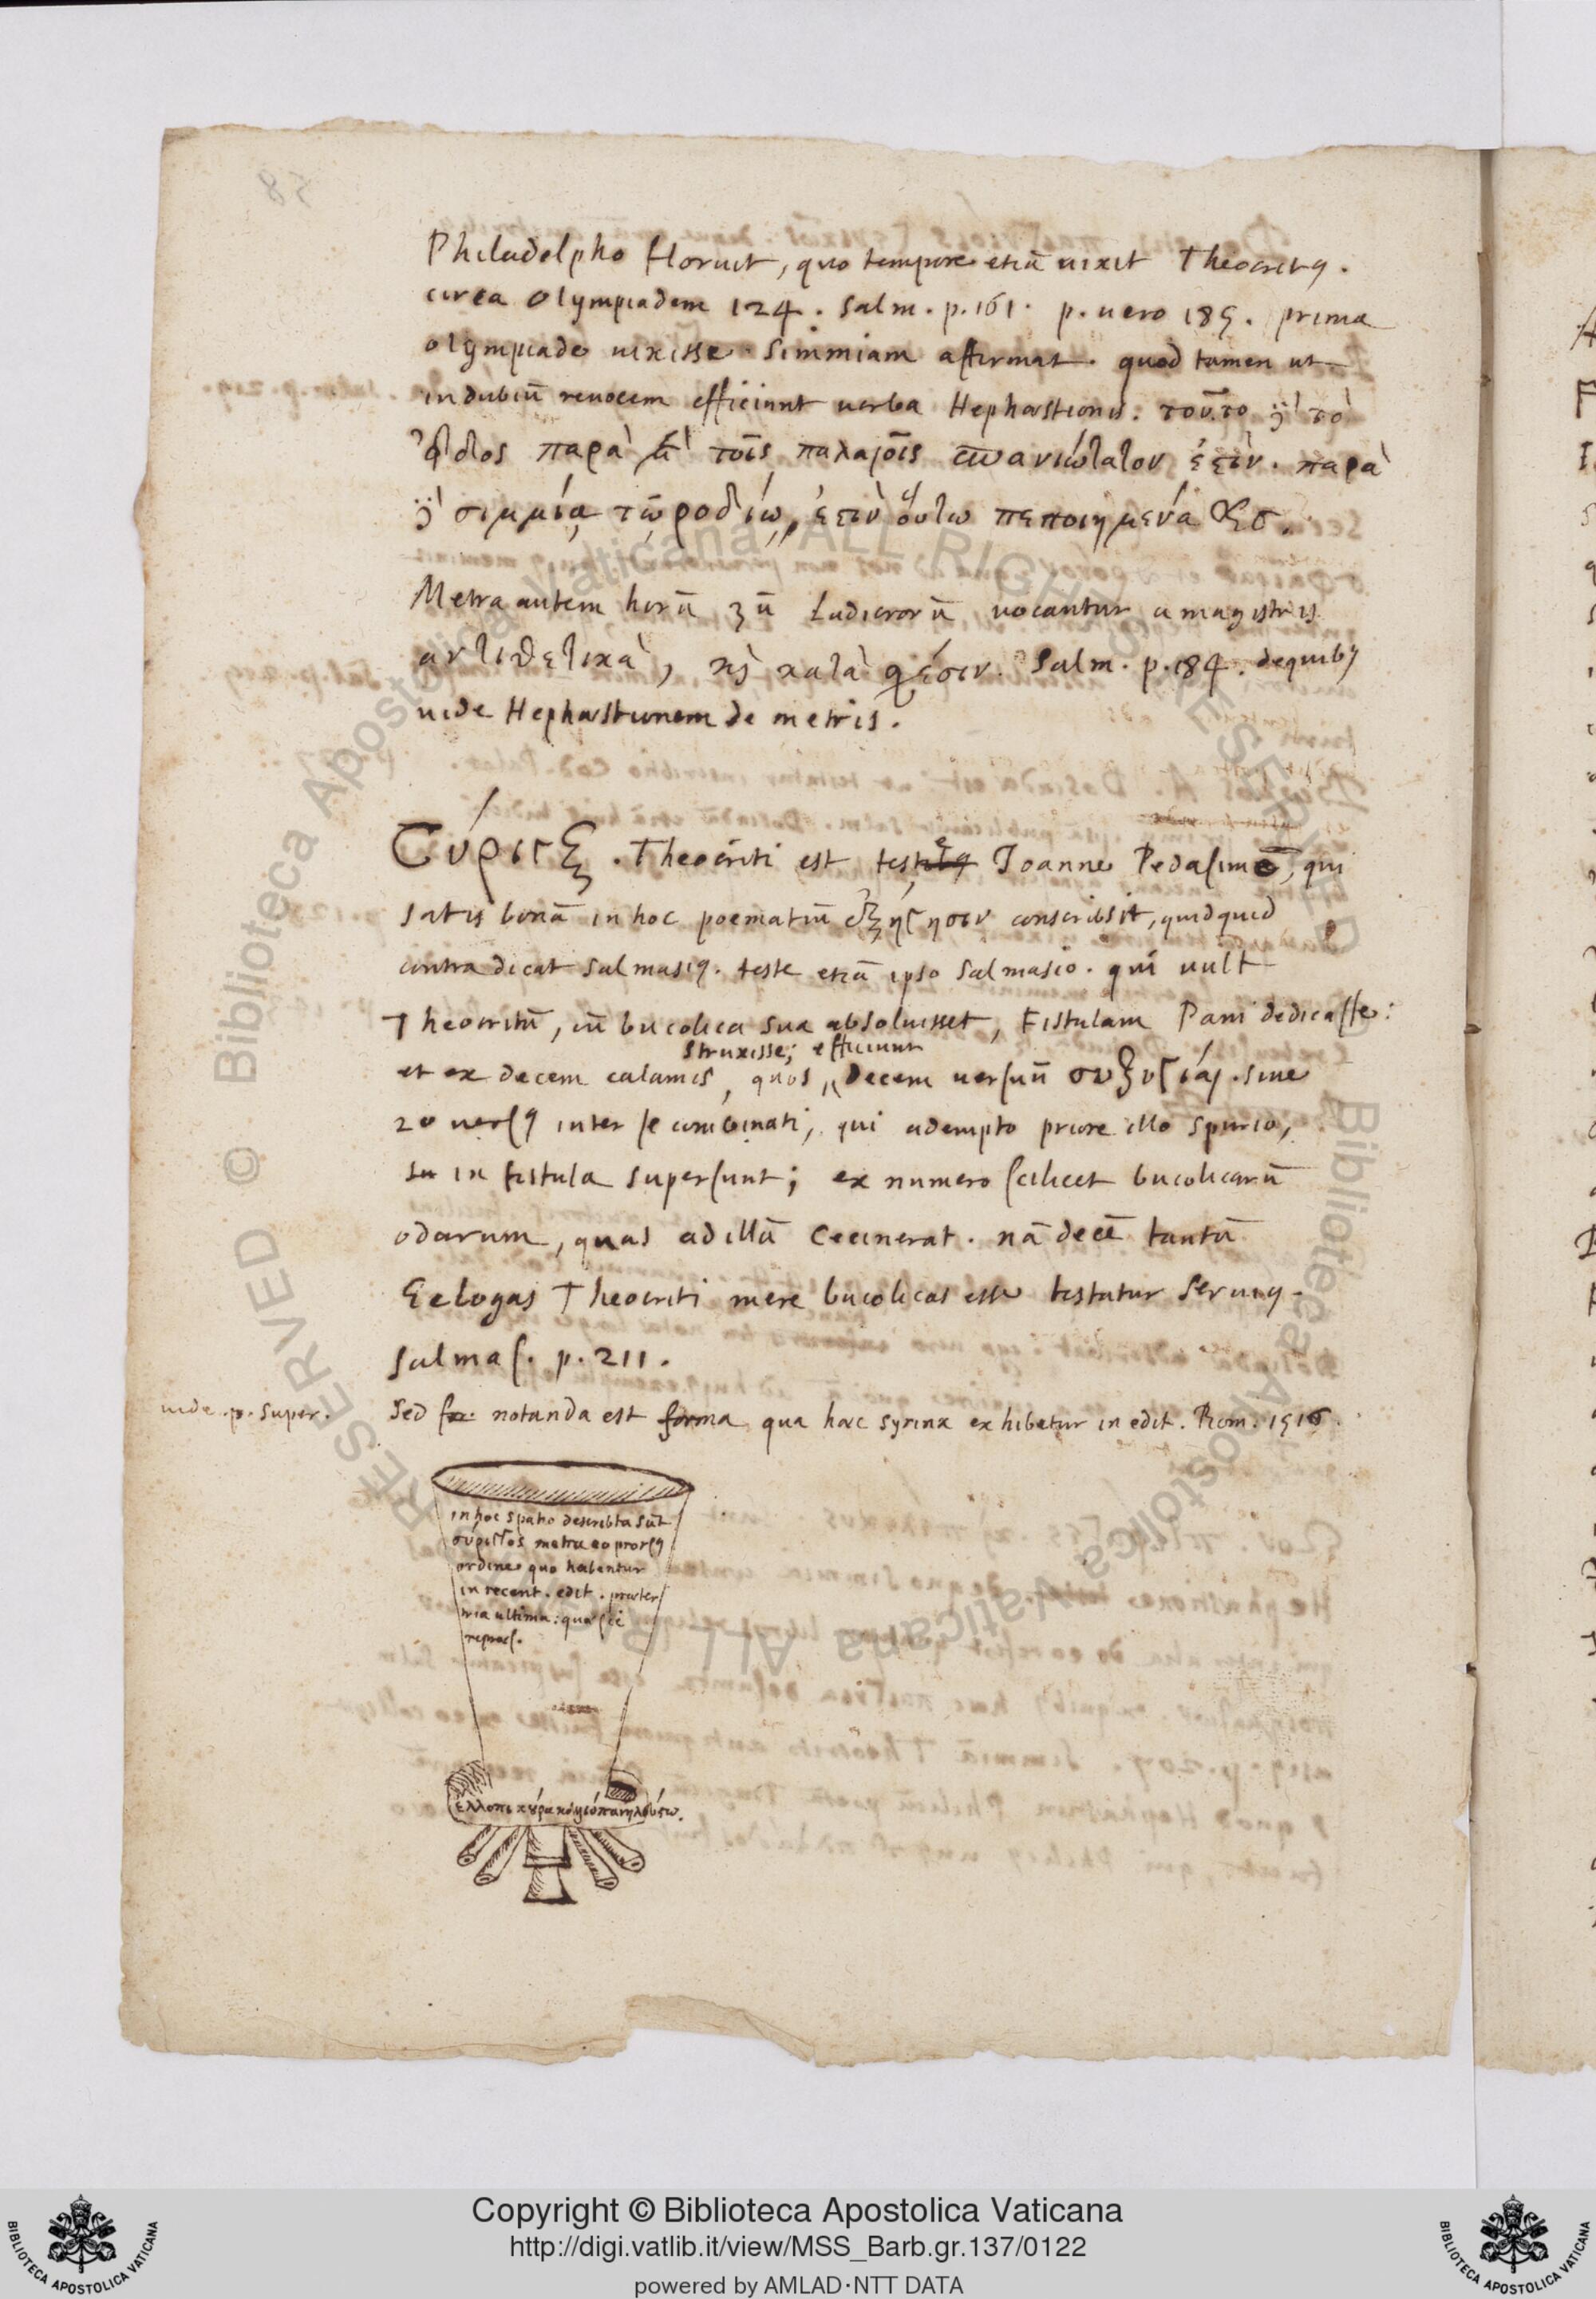 Philadelpho floruit, quo tempore etiā uixit Theocritꝯ.
circa Olympiadem 124. Salm. p. 161. p. uero 185. prima
olympiade uixisse Simmiam affirmat. quod tamen ut
in dubiū reuocem efficiunt uerba Hephæstionis. τοῦτο τὸ
παρὰ τοῖς παλαιοῖς σπανιώτατον ἐστὶν. παρὰ
σιμμίᾳ τῷ ροδίῳ, ἐστὶν οὕτω πεποιημένα
Metra autem horū Ludicrorū uocantur a magistris
ἀντιθετικὰ, κὶ κατὰ Salm. p. 184. de quibꝯ
uide Hephæstionem de metris.
Σύριγξ. Theocriti est teste Ioanne Pedasimo, qui
satis bonā in hoc poematiū ἐξήγησιν conscribsit, quidquid
contra dicat Salmasiꝯ. teste etiā ipso Salmasio. qui uult
Theocritū, cū bucolica sua absoluisset, Fistulam Pani dedicasse:
struxisse; efficiunt
et ex decem calamis, quos decem uersuū συζυγίαι. siue
20 uersꝯ inter se combinati, qui adempto priore illo spurio,
in fistula supersunt; ex numero scilicet bucolicarū
odarum, quas ad illā cecinerat. nā decē tantū
Eclogas Theocriti mere bucolicas esse testatur Seruiꝯ.
Salmas. p. 211.
uide p. super.
Sed notanda est forma qua hæc syrinx exhibetur in edit. Rom. 1516.
in hoc spatio describta sūt
σύριγγος metra eo prorsꝯ
ordine quo habentur
in recent. edit. præter
tria ultima: quæ sic
repræs.
Copyright © Biblioteca Apostolica Vaticana
http://digi.vatlib.it/view/MSS_Barb.gr.137/0122
powered by AMLAD·NTT DATA
BIBLIOTECA APOSTOLICA VATICANA
BIBLIOTECA APOSTOLICA VATICANA